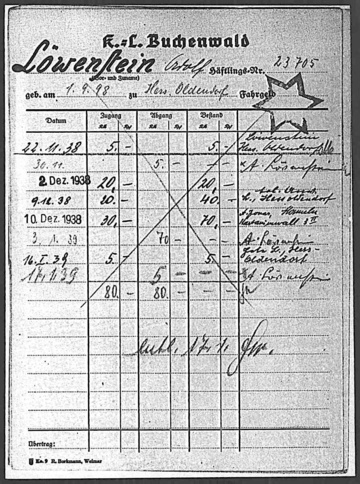 K.=L. Buchenwald
Löwenstein Adolf Häftlings-Nr. 23705
(Vor- und Zuname)
geb. am 1.9.98 zu Hess. Oldendorf Fahrgeld
Datum Zugang Abgang Bestand
RM Rpf RM Rpf RM Rpf
Löwenstein
22.11.38 5.- 5.- Hess. Oldendorf
30.11. 5. - - - A. Löwenstein
2. Dez. 1938 20,- 20,-
9.12.38 20.- 40.- Hess Oldendorf
10. Dez. 1938 30,- 70,- Hameln
3.1.39 70 - - - A. Löwenstein
Hess-
16.I.39 5.- 5.- Oldendorf
17.1.39 5 - - - A. Löwenstein
80.- 80.-
entl. 17.1.
Übertrag:
Kn. 9 R. Borkmann, Weimar